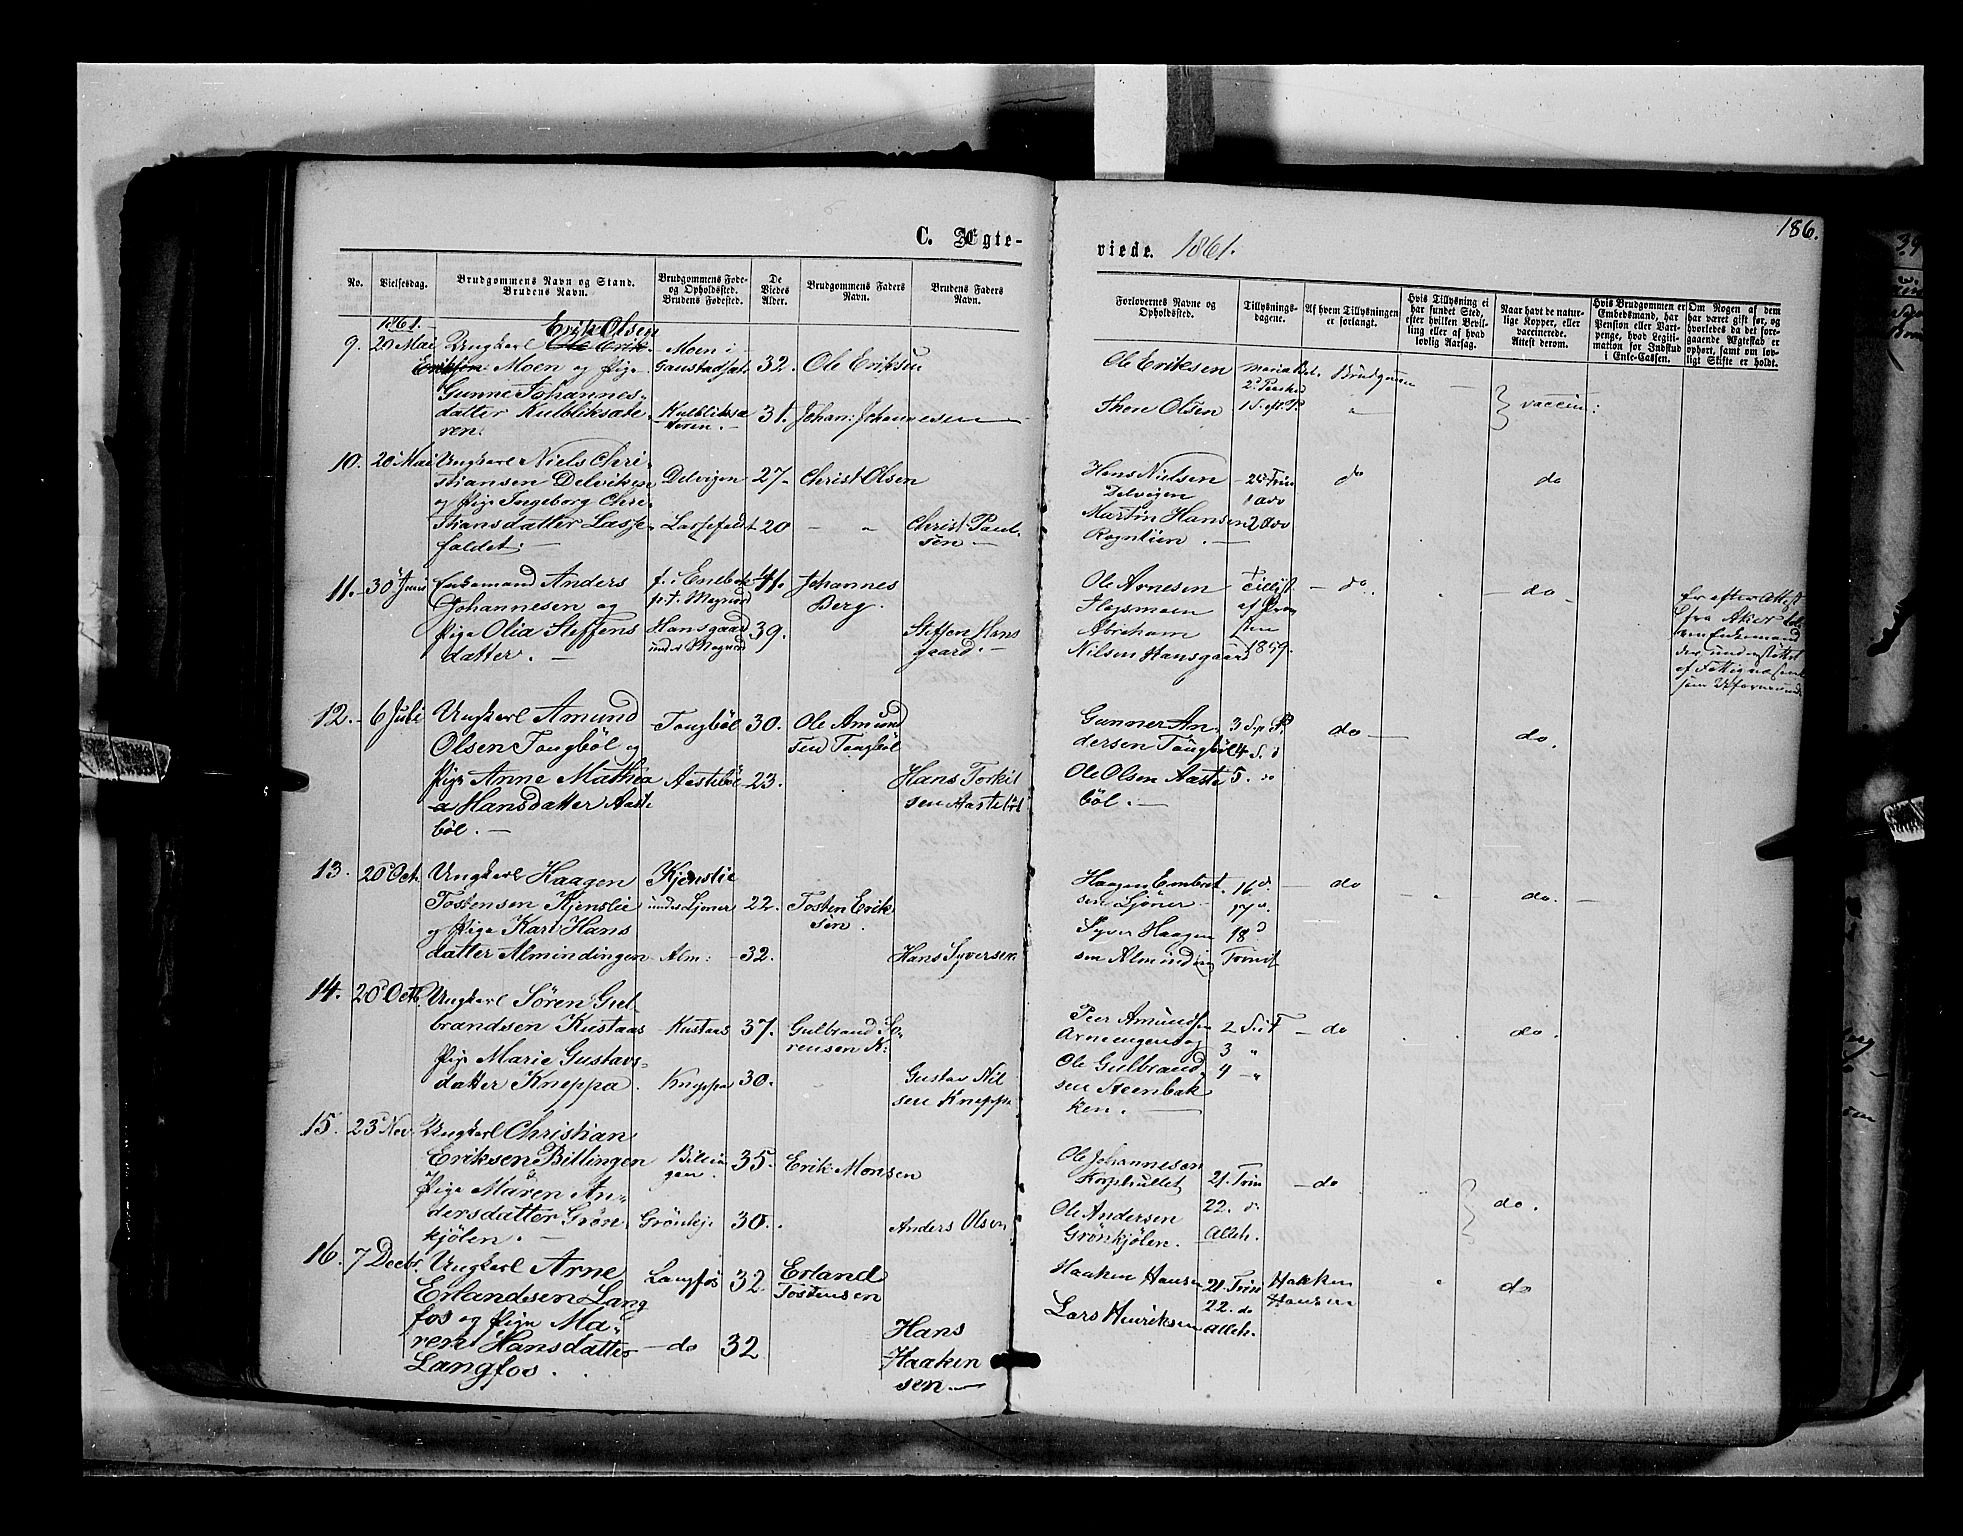 186.
C. Ægteviede. 1861.
No.
Vielsesdag.
Brudgommens Navn og Stand.
Brudens Navn.
Brudgommens Føde- og Opholdssted.
Brudens Fødested.
De Viedes Alder.
Brudgommens Faders Navn.
Brudens Faders Navn.
Forlovernes Navne og Opholdssted.
Tillysnings-dagene.
Af hvem Tillysningen er forlangt.
Hvis Tillysning ei har fundet Sted, efter hvilken Bevilling eller af hvad lovlig Aarsag.
Naar havt de naturlige Kopper, eller vaccinerede. Attest derom.
Hvis Brudgommen er Embedsmand, har Pension eller Vartpenge, hvad Legitimation for Indskud i Enke-Cassen.
Om Nogen af dem har været gift før, og hvorledes da det foregaaende Ægteskab er ophørt, samt om lovligt Skifte er holdt.
1861.
9. 20 Mai Ungkarl Erik Olsen
Moen og Pige
Gunne Johannes-
datter Kulbliksæte-
ren.
Moen i
Gaustadsæt. 32. Ole Eriksen
Kulbliksæ
teren. 31. Johan: Johannesen
Ole Eriksen
2 Paaske
Brudgommen
Thore Olsen
vaccin:
10. 20 Mai Ungkarl Niels Chri-
stiansen Delviken
og Pige Ingeborg Chri-
stiansdatter Lasse-
faldet.
Delvigen 27 Christ Olsen
Lassefaldet 20 Christ Paul-
sen
Hans Nielsen
Delvigen
Martin Hansen
Rogntien
25 Trin
1 Adv
2 Adv
do do
11. 30 Juni Enkemand Anders
Johannesen og
Pige Olia Steffens
datter.
f. i Enebak
p. t. Magnord 41. Johannes
Berg.
Hansgaard
under Magnord 39. Steffen Hans
gaard.
Ole Arnesen
Abraham
Nilsen Hansgaard
Tillyst
1859.
do do
Er efter Attest
fra Aker
Enkemand
der understøttet
af Fattigvæsenet
12. 6 Juli Ungkarl Amund
Olsen Tangbøl og
Pige Anne Mathea
Hansdatter Aaste
bøl.
Tangbøl 30. Ole Amund
sen Tangbøl
Aastebøl 23. Hans Torkil
sen Aastebøl
Gunner An-
dersen Tangbøl
Ole Olsen Aaste
bøl.
3 S. p. P.
4 S. d
5. do
do do.
13. 20 Oct. Ungkarl Haagen
Tostensen Kjenslie
og Pige Kari Hans
datter Almindingen
Kjenslie
under Ljøner 22. Tosten Erik
sen.
Alm: 32. Hans Syversen
Haagen Embret
sen Ljøner
Syver Haagen
sen Alminding
16 d.
17 d.
18 d
Trinit
do do.
14. 20 Octb. Ungkarl Søren Gul-
brandsen Kustaas
Pige Marie Gustavs-
datter Kneppa.
Kustaas 37. Gulbrand Sø-
rensen K:
Kneppa 30. Gustav Nil
sen Kneppa
Peer Amundsen
Arneengen og
Ole Gulbrand
sen Steenbak
ken.
2 S. i F
3 "
4 "
do do.
15. 23 Nov. Ungkarl Christian
Eriksen Billingen
Pige Maren An-
dersdatter Grøn
kjølen.
Billin
gen. 35. Erik Monsen
Grønkj. 30. Anders Olsen
Ole Johannesen
Korpehullet
Ole Andersen
Grønkjølen.
21. Trin
22. do
Alleh.
do do.
16. 7 Decbr. Ungkarl Arne
Erlandsen Lang
fos og Pige Ma-
ren Hansdatter
Langfos.
Langfos 32. Erland
Tostensen
do 32 Hans
Haaken
sen.
Haaken Hansen
Lars Henriksen
21. Trin
22. do
Alleh.
Hakken
Hansen
do